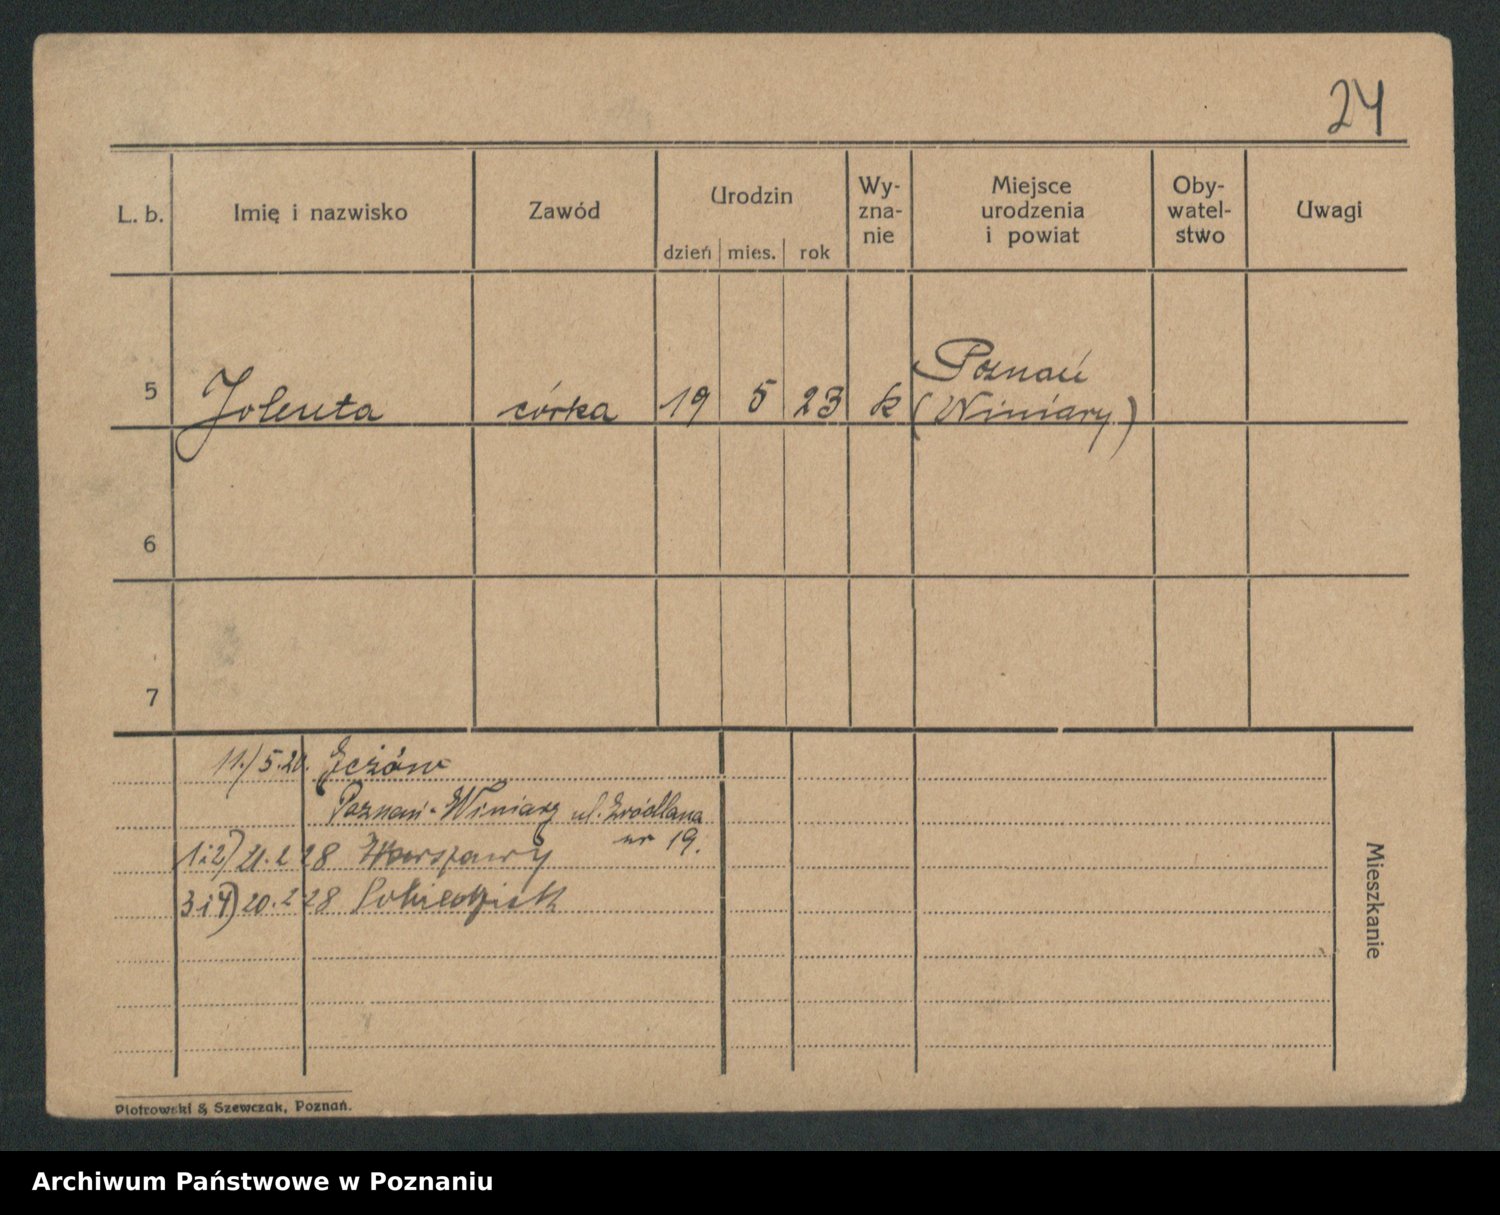 24
L. b.
Imię i nazwisko
Zawód
Urodzin
dzień mies. rok
Wy-
zna-
nie
Miejsce
urodzenia
i powiat
Oby-
watel-
stwo
Uwagi
5 Jolenta córka 19 5 23 k Poznań
(Winiary)
6
7
11./5.20. Jeżów
Poznań-Winiary ul. Źródlana
nr 19.
1i2) 21.2 28 Warszawy
3i4) 20.2 28
Mieszkanie
Piotrowski & Szewczak, Poznań.
Archiwum Państwowe w Poznaniu